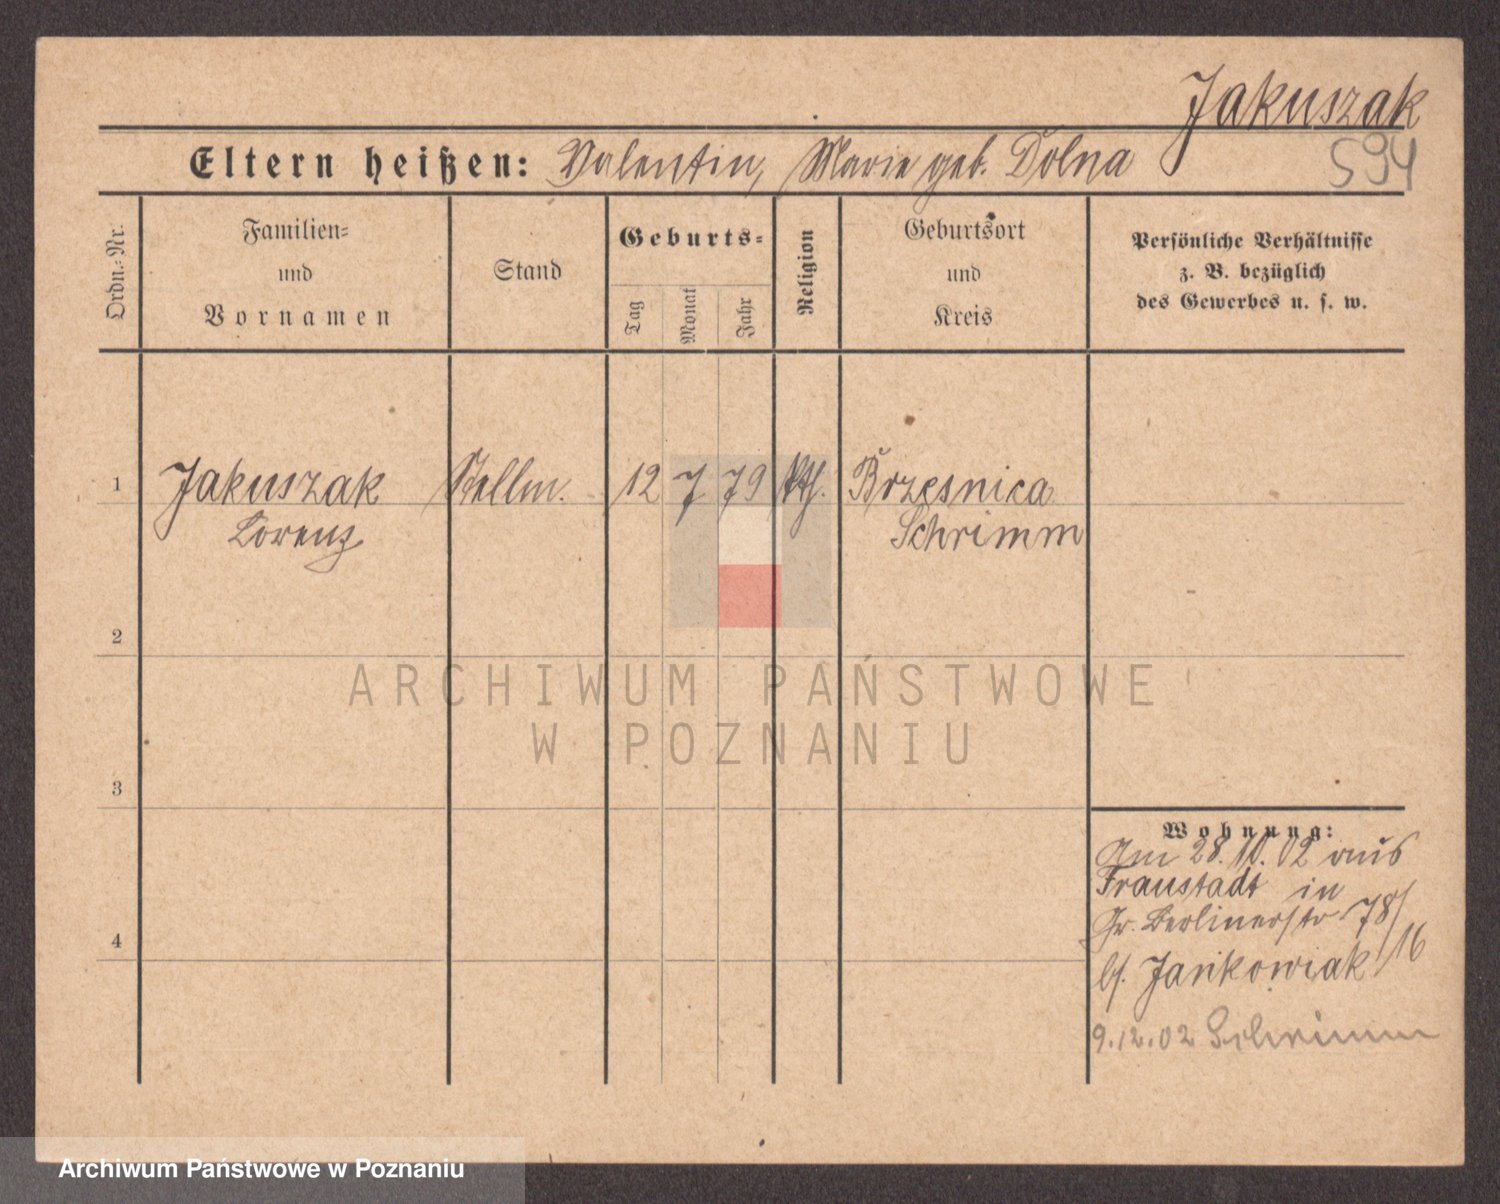 Jakuszak
594
Eltern heißen: Valentin, Marie geb. Dolna
Ordn.-Nr.
Familien-
und
Vornamen
Stand
Geburts-
Tag
Monat
Jahr
Religion
Geburtsort
und
Kreis
Persönliche Verhältnisse
z. B. bezüglich
des Gewerbes u. s. w.
1 Jakuszak Stellm. 12 7 79 kth. Brzesnica
Lorenz Schrimm
2
3
4
Wohnung:
Am 28.10.02 aus
Fraustadt in
Gr. Berlinerstr 78/
16
bf. Jankowiak
9.12.02 Schrimm
ARCHIWUM PAŃSTWOWE
W POZNANIU
Archiwum Państwowe w Poznaniu